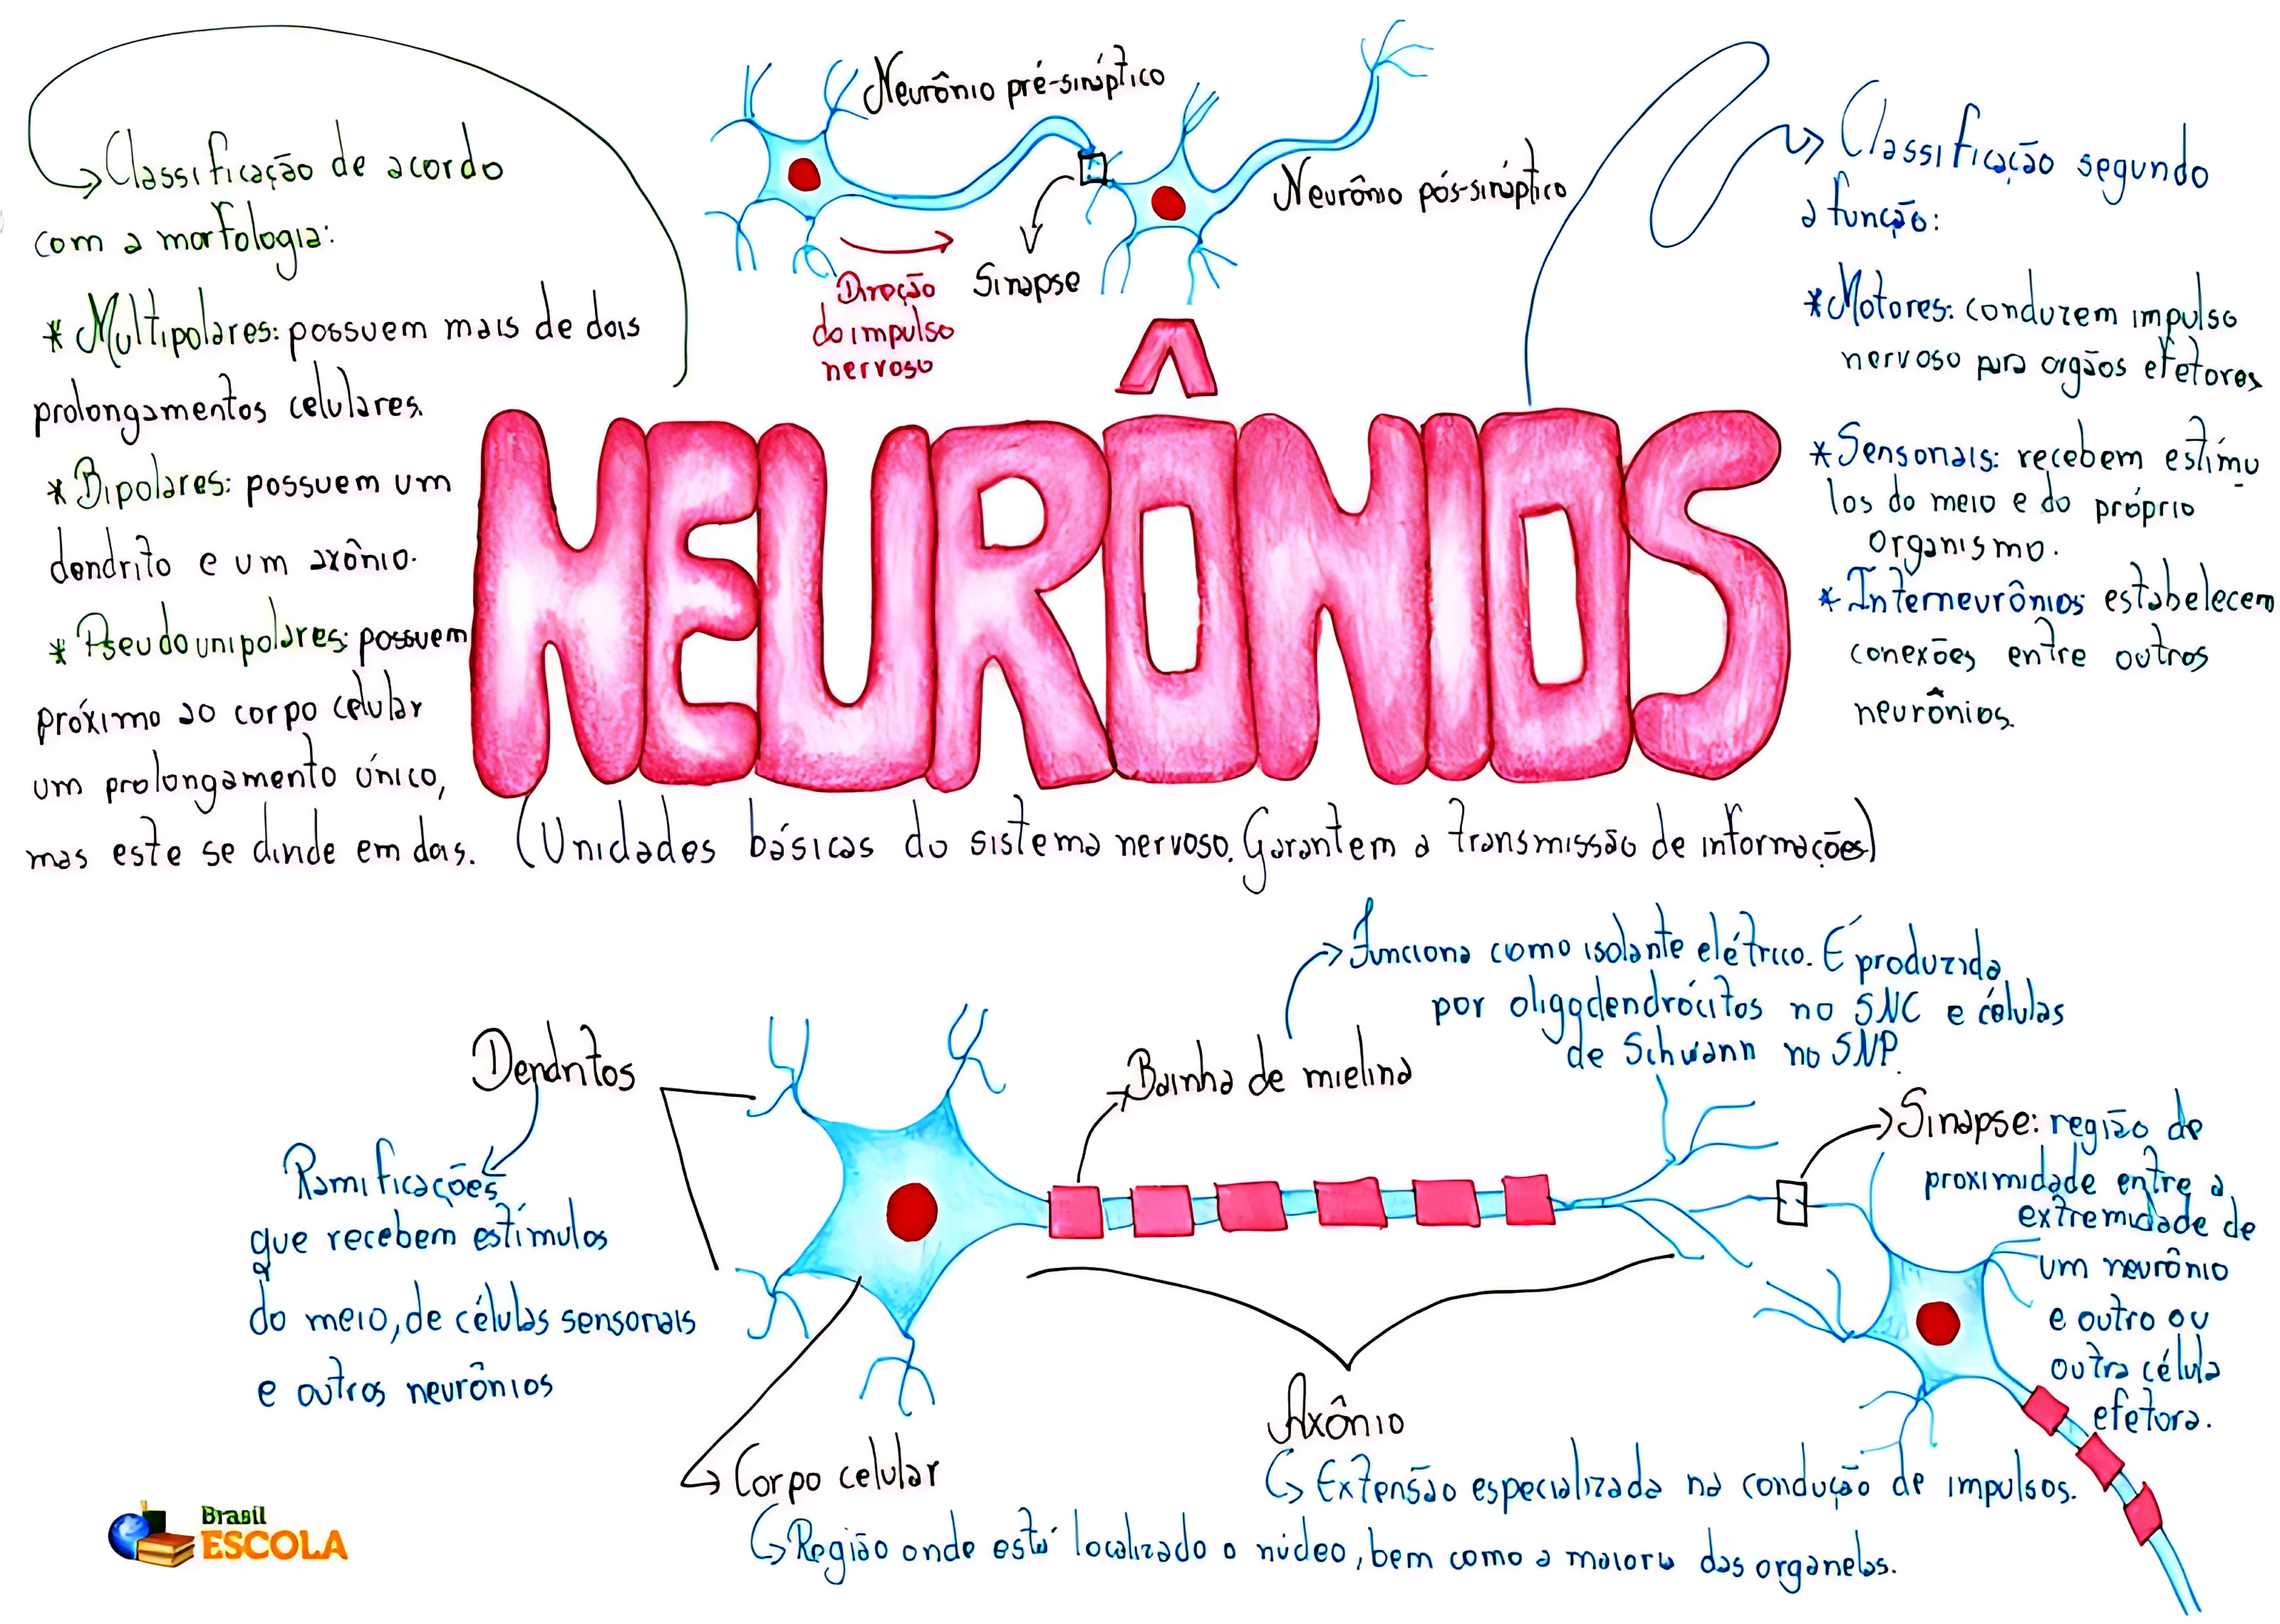 Neurônio pré-sináptico
Neurônio pós-sináptico
Sinapse
Direção
do impulso
nervoso
Classificação de acordo
com a morfologia:
* Multipolares: possuem mais de dois
prolongamentos celulares.
* Bipolares: possuem um
dendrito e um axônio.
* Pseudounipolares: possuem
próximo ao corpo celular
um prolongamento único,
mas este se divide em dois.
Classificação segundo
a função:
* Motores: conduzem impulso
nervoso para orgãos efetores
* Sensoriais: recebem estímu
los do meio e do próprio
organismo.
* Interneurônios: estabelecem
conexões entre outros
neurônios.
NEURÔNIOS
(Unidades básicas do sistema nervoso. Garantem a transmissão de informações)
Dendritos
Ramificações
que recebem estímulos
do meio, de células sensoriais
e outros neurônios
Funciona como isolante elétrico. É produzida
por oligodendrócitos no SNC e células
de Schwann no SNP.
Bainha de mielina
Sinapse: região de
proximidade entre a
extremidade de
um neurônio
e outro ou
outra célula
efetora.
Axônio
Extensão especializada na condução de impulsos.
Corpo celular
Região onde está localizado o núcleo, bem como a maioria das organelas.
Brasil
ESCOLA